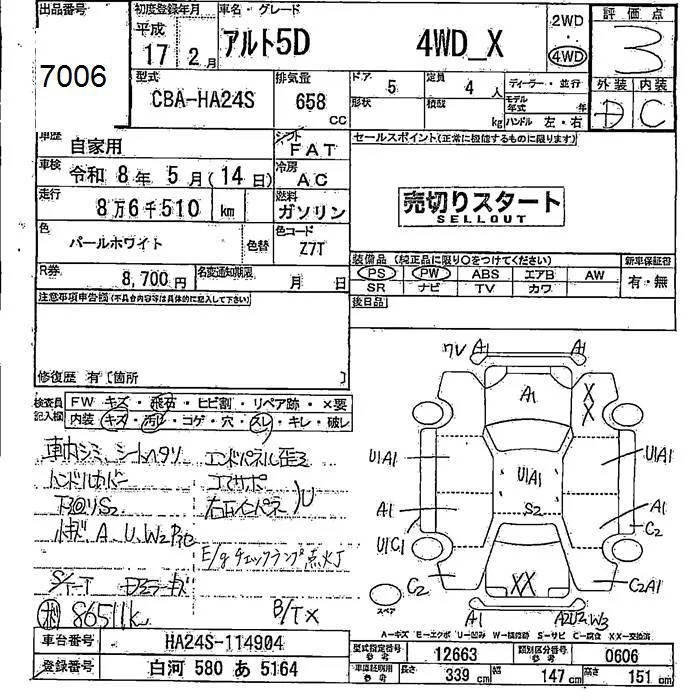 出品番号
7006
初度登録年月
平成 17年 2月
車名・グレード
アルト5D 4WD_X
2WD
・
4WD
評価点
3
外装 内装
D C
型式
CBA-HA24S
排気量
658 cc
ドア 5
定員 4人
ディーラー・並行
形状
積載 kg
モデル年式 年
ハンドル 左・右
車歴
自家用
シフト
FAT
車検
令和 8年 5月(14日)
冷房
AC
走行
8万6千510 km
燃料
ガソリン
色
パールホワイト
色替
色コード
Z7T
R券
8,700円
名変通知期限
月 日
セールスポイント(正常に機能するものに限ります)
売切りスタート
SELLOUT
装備品(純正品に限り○をつけてください)
新車保証書
PS PW ABS エアB AW
有・無
SR ナビ TV カワ
後日品
注意事項申告欄(不具合内容等は具体的に記入して下さい)
修復歴 有〔箇所 〕
検査員記入欄
FW キズ・飛石・ヒビ割・リペア跡・×要
内装 キズ・汚れ・コゲ・穴・スレ・キレ・破レ
車内シミ、シートヘタリ
エンドパネル歪ミ
ハンドルカバー
コアサポ
下回リS2
右正インパネ )U
小キズ、A、U、W2
E/gチェックランプ点灯
86511k
B/T×
ワレ A1 A1
A1
X
X
U1A1
U1A1
U1A1
S2
A1
A1
C2
U1C1
C2
XX
C2A1
スペア
A1
A2U2W3
A-キズ E-エクボ U-凹み W-補修跡 S-サビ C-腐食 XX-交換済
車台番号
HA24S-114904
登録番号
白河 580 あ 5164
型式指定番号 参考
12663
類別区分番号 参考
0606
車庫証明用 参考
長さ 339 cm
幅 147 cm
高さ 151 cm